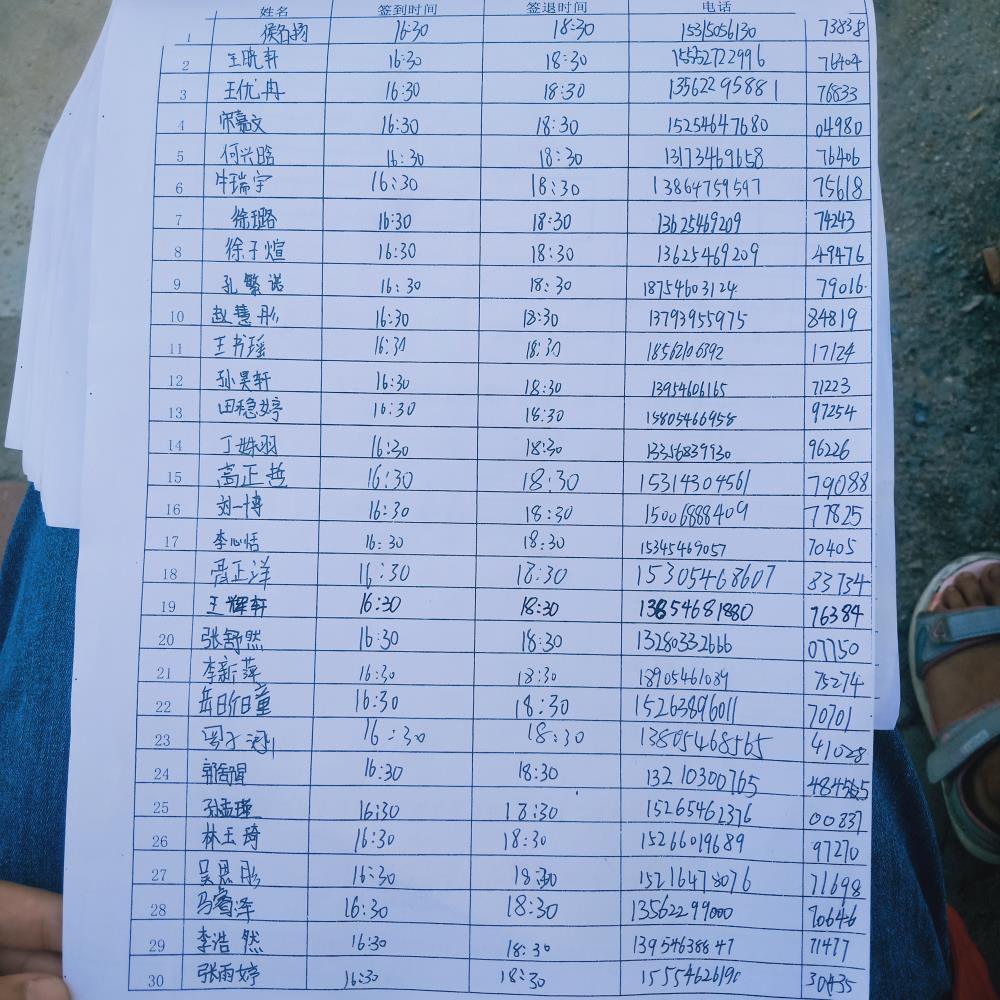 姓名 签到时间 签退时间 电话
1 侯名扬 16:30 18:30 15315056130 73838
2 王晓轩 16:30 18:30 15552722996 76404
3 王优冉 16:30 18:30 13562295881 76833
4 宋嘉文 16:30 18:30 15254647680 04980
5 何兴晗 16:30 18:30 13173469658 76406
6 牛瑞宇 16:30 18:30 13864759597 75618
7 徐璐 16:30 18:30 13625469209 74243
8 徐子煊 16:30 18:30 13625469209 49476
9 孔繁诺 16:30 18:30 18754603124 79016
10 赵慧彤 16:30 18:30 13793955975 84819
11 王书瑶 16:30 18:30 18562106392 17124
12 孙昊轩 16:30 18:30 13954606165 71223
13 田稳婷 16:30 18:30 15805466958 97254
14 丁姝羽 16:30 18:30 96226
15 高正哲 16:30 18:30 15314304561 79088
16 刘一博 16:30 18:30 15006888409 77825
17 李心恬 16:30 18:30 15345469057 70405
18 高正洋 16:30 18:30 15305468607 83734
19 王辉轩 16:30 18:30 13854681880 76384
20 张舒然 16:30 18:30 13280332666 07750
21 李新萍 16:30 18:30 18905461089 75274
22 16:30 18:30 15263896011 70701
23 16:30 18:30 13805468565 41028
24 16:30 18:30 13210300765
25 孙孟瑶 16:30 18:30 15265462376 00837
26 林玉琦 16:30 18:30 15266019689 97270
27 吴思彤 16:30 18:30 15216478076 71698
28 马睿泽 16:30 18:30 13562299000 70646
29 李浩然 16:30 18:30 13954638847 71477
30 张雨婷 16:30 18:30 30435